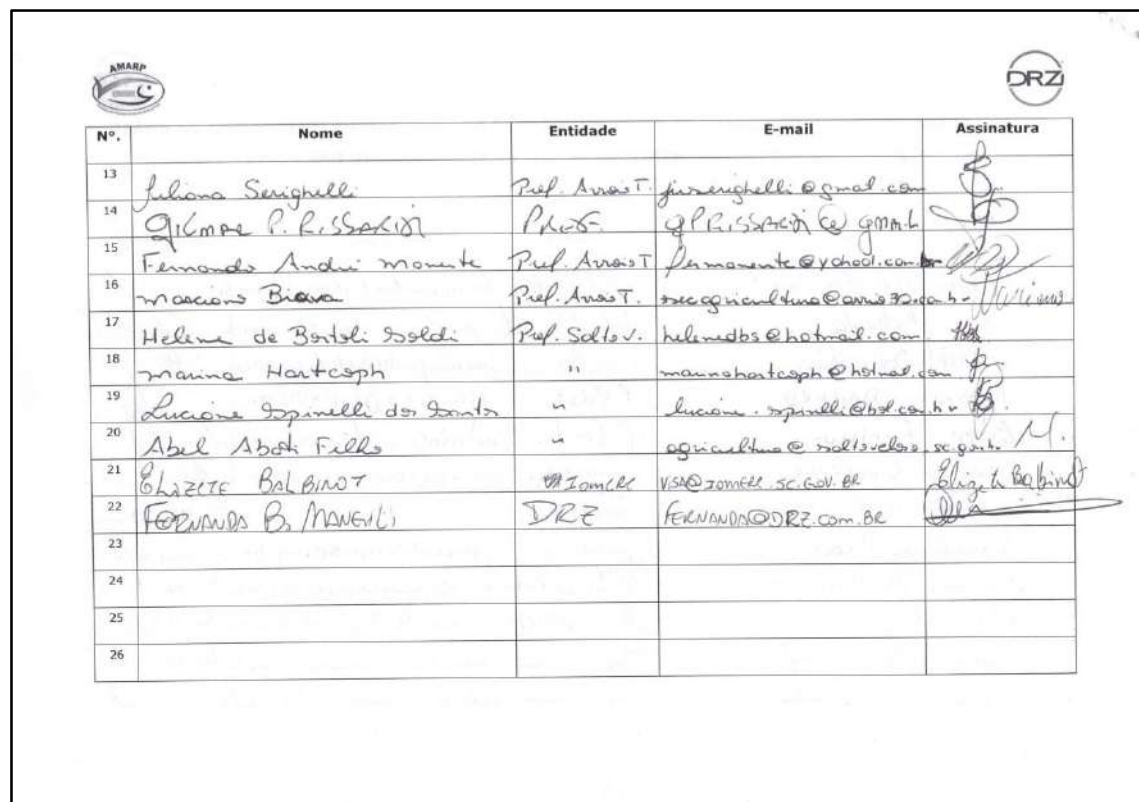 AMARP
DRZ
Nº. Nome Entidade E-mail Assinatura
13 Juliana Serighelli Pref. Arroio T. juserighelli@gmail.com
14 Gilmar P. Rissardi
15 Fernando André Monente Pref. Arroio T fermonente@yahoo.com.br
16 Marciano Biava Pref. Arroio T.
17 Helene de Bortoli Soldi Pref. Salto V. helenedbs@hotmail.com
18 Marina Hartcoph " marinahartcoph@hotmail.com
19 Luciane Spinelli dos Santos " luciane.spinelli@bol.com.br
20 Abel Aboti Filho " agricultura@saltoveloso.sc.gov.br
21 ELIZETE BALBINOT IOMERE VISA@IOMERE.SC.GOV.BR Elizete Balbinot
22 FERNANDA B. MANGILI DRZ FERNANDA@DRZ.COM.BR
23
24
25
26